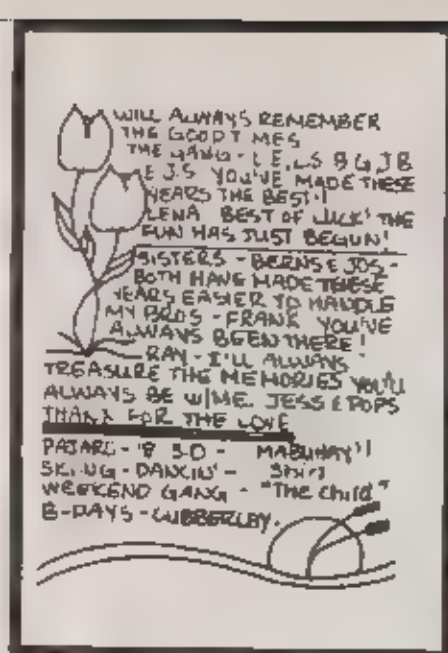 WILL ALWAYS REMEMBER
THE GOOD T MES
THE GANG - L E, LS B G, J B
E J.S YOU'VE MADE THESE
YEARS THE BEST!
LENA BEST OF LUCK! THE
FUN HAS JUST BEGUN!
SISTERS - BERNS E JOS -
BOTH HAVE MADE THESE
YEARS EASIER TO HANDLE
MY BROS - FRANK YOU'VE
ALWAYS BEEN THERE!
RAY - I'LL ALWAYS
TREASURE THE MEMORIES YOU'LL
ALWAYS BE W/ME. JESS E POPS
THANX FOR THE LOVE
PAJARO - MABUHAY!!
SKI NG - DANCIN' -
WEEKEND GANG - "The Child"
B-DAYS - CUBBERLEY.